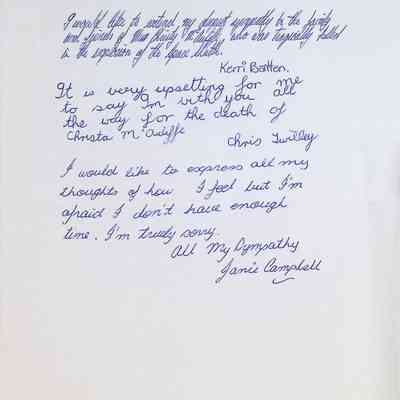 I would like to extend my deepest sympathy to the family
and friends of Miss Christa McAuliffe, who was tragically killed
in the explosion of the Space Shuttle.
Kerri Batten.
It is very upsetting for me
to say I'm with you all
the way for the death of
Christa McAuliffe
Chris Twilley
I would like to express all my
thoughts of how I feel but I'm
afraid I don't have enough
time. I'm truely sorry.
All My Dympathy
Janie Campbell